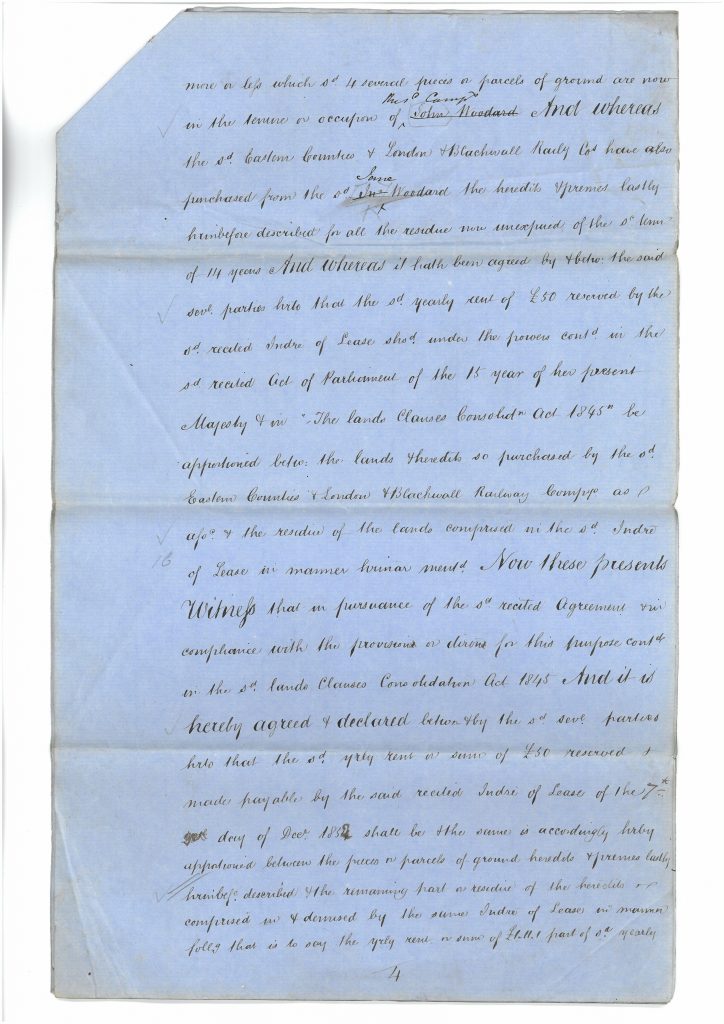 more or less which sd 4 several pieces or parcels of ground are now
thes Compy
in the tenure or occupon of John Woodard And whereas
the sd. Eastern Counties & London & Blackwall Raily Cos have also
Same
purchased from the sd Jno Woodard the heredits & premes lastly
hrinbefore described for all the residue now unexpired of the sd term
of 14 years And whereas it hath been agreed by & betw: the said
sevl. parties hrto that the sd. yearly rent of £50 reserved by the
sd. recited Indre of Lease shod. under the powers contd. in the
sd recited Act of Parliament of the 15 year of her present
Majesty & in "The lands Clauses Consolidn Act 1845" be
apportioned betw: the lands & heredits so purchased by the sd.
Eastern Counties & London & Blackwall Railway Compys as
afsd. & the residue of the lands comprised in the sd. Indre
16
of Lease in manner hrinar mentd. Now these presents
Witness that in pursuance of the sd recited Agreement & in
compliance with the provisions or dirons for this purpose contd
in the sd. lands Clauses Consolidation Act 1845 And it is
hereby agreed & declared betwn & by the sd sevl parties
hrto that the sd. yrly rent or sum of £50 reserved &
made payable by the said recited Indre of Lease of the 7th
day of Decr. 1852 shall be & the same is accordingly hrby
apportioned between the pieces or parcels of ground heredits & premes lastly
hrinbefe. described & the remaining part or residue of the heredits
comprised in & demised by the same Indre of Lease in manner
follg that is to say the yrly rent or sum of £1.11.1 part of sd yearly
4